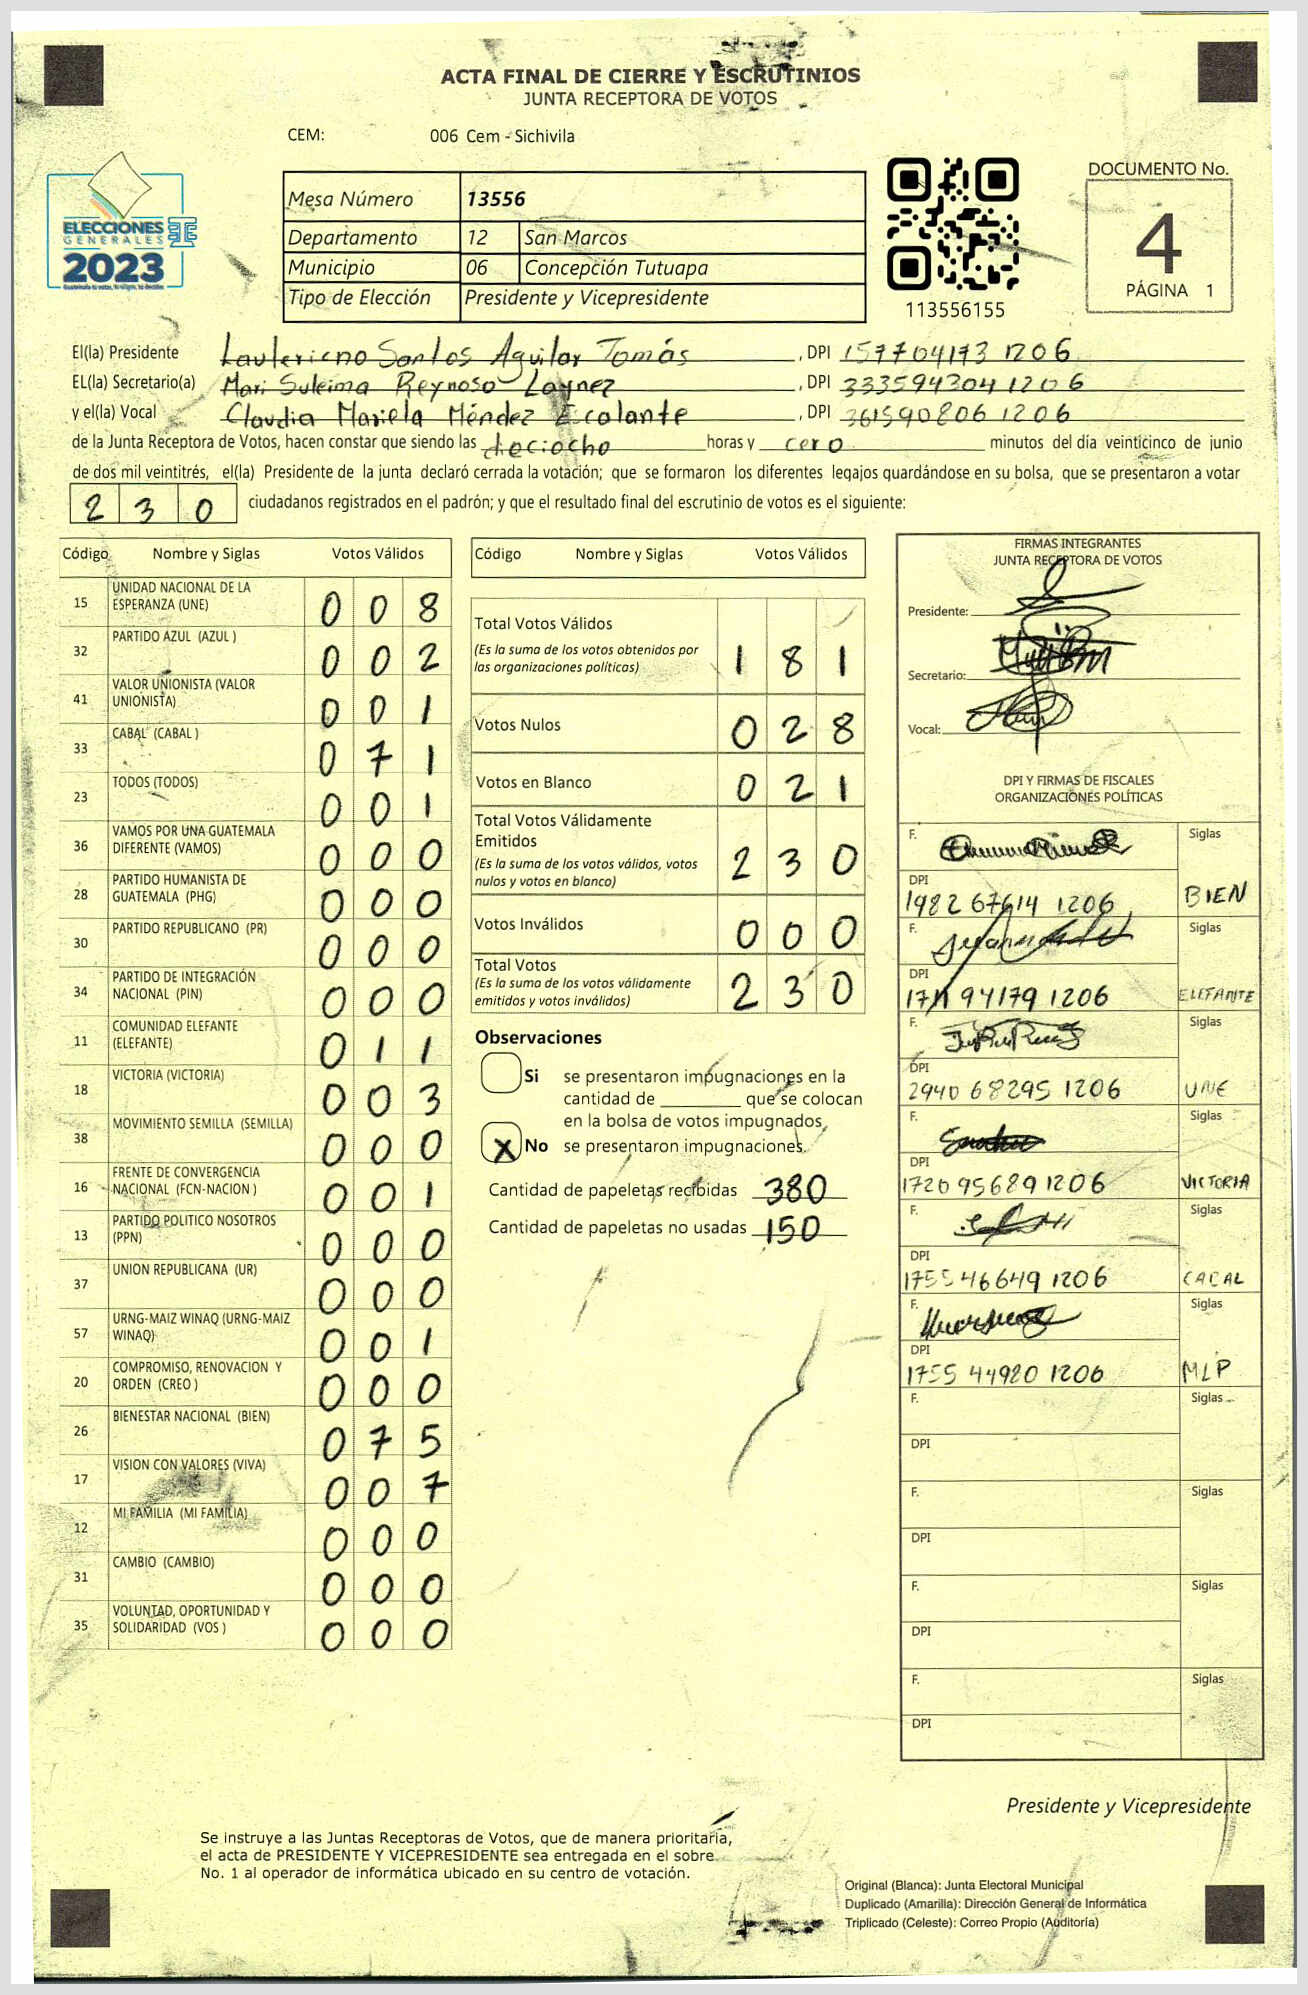 ACTA FINAL DE CIERRE Y ESCRUTINIOS
JUNTA RECEPTORA DE VOTOS
CEM: 006 Cem - Sichivila
ELECCIONES
GENERALES
2023
Mesa Número 13556
Departamento 12 San Marcos
Municipio 06 Concepción Tutuapa
Tipo de Elección Presidente y Vicepresidente
113556155
DOCUMENTO No.
4
PÁGINA 1
El(la) Presidente Santos Aguilar Tomás , DPI 157704173 1206
EL(la) Secretario(a) Mari Suleima Reynoso Laynez , DPI 333594304 1206
y el(la) Vocal Claudia Mariela Méndez Escalante , DPI 361590806 1206
de la Junta Receptora de Votos, hacen constar que siendo las dieciocho horas y cero minutos del día veinticinco de junio
de dos mil veintitrés, el(la) Presidente de la junta declaró cerrada la votación; que se formaron los diferentes legajos guardándose en su bolsa, que se presentaron a votar
2 3 0 ciudadanos registrados en el padrón; y que el resultado final del escrutinio de votos es el siguiente:
Código Nombre y Siglas Votos Válidos
15 UNIDAD NACIONAL DE LA ESPERANZA (UNE) 0 0 8
32 PARTIDO AZUL (AZUL ) 0 0 2
41 VALOR UNIONISTA (VALOR UNIONISTA) 0 0 1
33 CABAL (CABAL ) 0 7 1
23 TODOS (TODOS) 0 0 1
36 VAMOS POR UNA GUATEMALA DIFERENTE (VAMOS) 0 0 0
28 PARTIDO HUMANISTA DE GUATEMALA (PHG) 0 0 0
30 PARTIDO REPUBLICANO (PR) 0 0 0
34 PARTIDO DE INTEGRACIÓN NACIONAL (PIN) 0 0 0
11 COMUNIDAD ELEFANTE (ELEFANTE) 0 1 1
18 VICTORIA (VICTORIA) 0 0 3
38 MOVIMIENTO SEMILLA (SEMILLA) 0 0 0
16 FRENTE DE CONVERGENCIA NACIONAL (FCN-NACION ) 0 0 1
13 PARTIDO POLITICO NOSOTROS (PPN) 0 0 0
37 UNION REPUBLICANA (UR) 0 0 0
57 URNG-MAIZ WINAQ (URNG-MAIZ WINAQ) 0 0 1
20 COMPROMISO, RENOVACION Y ORDEN (CREO ) 0 0 0
26 BIENESTAR NACIONAL (BIEN) 0 7 5
17 VISION CON VALORES (VIVA) 0 0 7
12 MI FAMILIA (MI FAMILIA) 0 0 0
31 CAMBIO (CAMBIO) 0 0 0
35 VOLUNTAD, OPORTUNIDAD Y SOLIDARIDAD (VOS ) 0 0 0
Código Nombre y Siglas Votos Válidos
Total Votos Válidos
(Es la suma de los votos obtenidos por las organizaciones políticas) 1 8 1
Votos Nulos 0 2 8
Votos en Blanco 0 2 1
Total Votos Válidamente Emitidos
(Es la suma de los votos válidos, votos nulos y votos en blanco) 2 3 0
Votos Inválidos 0 0 0
Total Votos
(Es la suma de los votos válidamente emitidos y votos inválidos) 2 3 0
Observaciones
Si se presentaron impugnaciones en la
cantidad de ________ que se colocan
en la bolsa de votos impugnados
X No se presentaron impugnaciones.
Cantidad de papeletas recibidas 380
Cantidad de papeletas no usadas 150
FIRMAS INTEGRANTES
JUNTA RECEPTORA DE VOTOS
Presidente:
Secretario:
Vocal:
DPI Y FIRMAS DE FISCALES
ORGANIZACIONES POLÍTICAS
F. Siglas
DPI
1982 67614 1206 BIEN
F. Siglas
DPI
1711 94179 1206 ELEFANTE
F. Siglas
DPI
2940 68295 1206 UNE
F. Siglas
DPI
1720 95689 1206 VICTORIA
F. Siglas
DPI
1755 46649 1206 CACAL
F. Siglas
DPI
1755 44920 1206 MLP
F. Siglas
DPI
F. Siglas
DPI
F. Siglas
DPI
F. Siglas
DPI
Presidente y Vicepresidente
Se instruye a las Juntas Receptoras de Votos, que de manera prioritaria,
el acta de PRESIDENTE Y VICEPRESIDENTE sea entregada en el sobre
No. 1 al operador de informática ubicado en su centro de votación.
Original (Blanca): Junta Electoral Municipal
Duplicado (Amarilla): Dirección General de Informática
Triplicado (Celeste): Correo Propio (Auditoría)